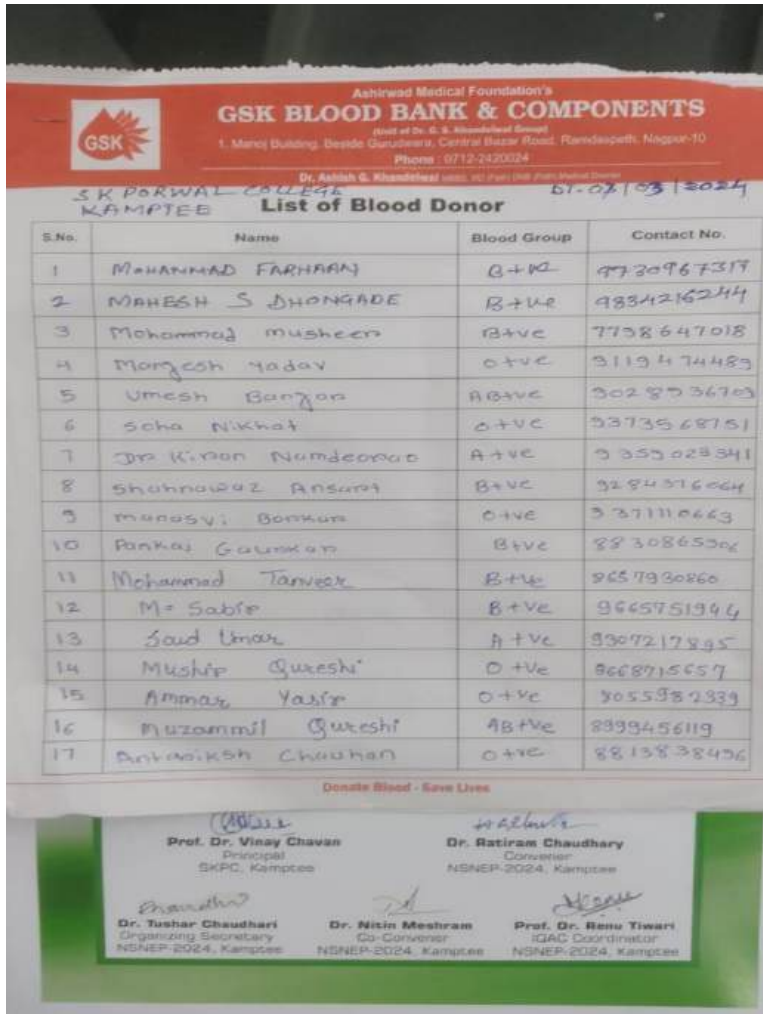 Ashirwad Medical Foundation's
GSK BLOOD BANK & COMPONENTS
(Unit of Dr. G. S. Khandelwal Group)
GSK
1, Manoj Building, Beside Gurudwara, Central Bazar Road, Ramdaspeth, Nagpur-10
Phone : 0712-2420024
Dr. Ashish G. Khandelwal
S K PORWAL COLLEGE
KAMPTEE
DT. 07/03/2024
List of Blood Donor
S.No. Name Blood Group Contact No.
1 MOHAMMAD FARHAAN B+ve 9730967317
2 MAHESH S DHONGADE B+ve 9834216244
3 Mohammad musheer B+ve 7798647018
4 Yadav O+ve 9119474489
5 Umesh AB+ve 9028936703
6 Soha Nikhat O+ve 9373568751
7 Dr. Kiran Namdeorao A+ve 9359028341
8 Shahnawaz Ansari B+ve 9284376064
9 manasvi O+ve 9371110663
10 Pankaj B+ve 8830865906
11 Mohammad Tanveer B+ve 8657930860
12 Md Sabir B+ve 9665751944
13 Saud Umar A+ve 9307217895
14 Mushir Qureshi O+ve 8668715657
15 Ammar Yasir O+ve 8055982339
16 Muzammil Qureshi AB+ve 8999456119
17 Antariksh Chauhan O+ve 8813838496
Donate Blood - Save Lives
Prof. Dr. Vinay Chavan
Principal
SKPC, Kamptee
Dr. Ratiram Chaudhary
Convener
NSNEP-2024, Kamptee
Dr. Tushar Chaudhari
Organizing Secretary
NSNEP-2024, Kamptee
Dr. Nitin Meshram
Co-Convener
NSNEP-2024, Kamptee
Prof. Dr. Renu Tiwari
IQAC Coordinator
NSNEP-2024, Kamptee